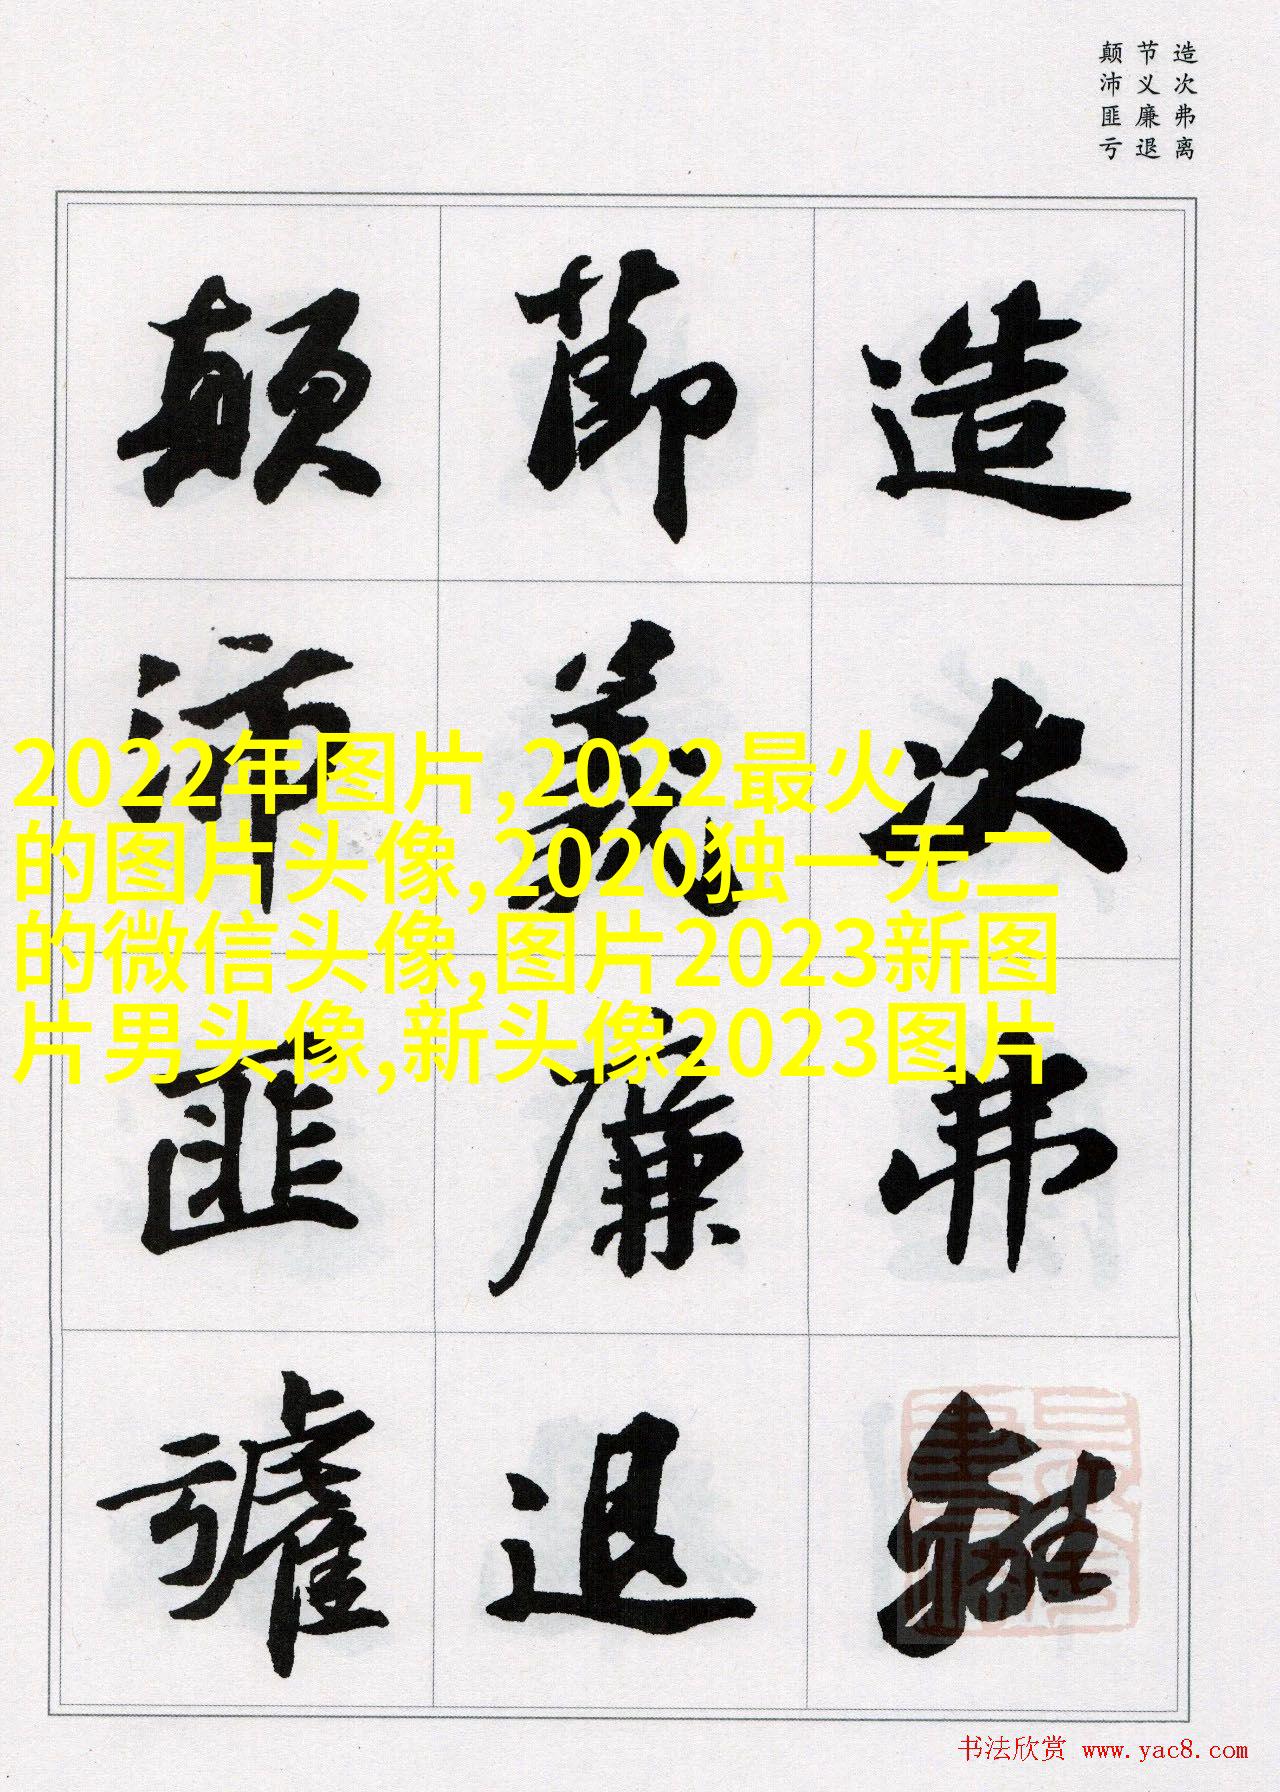 造次弗离
节义廉退
颠沛匪亏
造次弗離
節義廉退
顛沛匪虧
2022年图片,2022最火
的图片头像,2020独一无二
的微信头像,图片2023新图
片男头像,新头像2023图片
书法欣赏 www.yac8.com